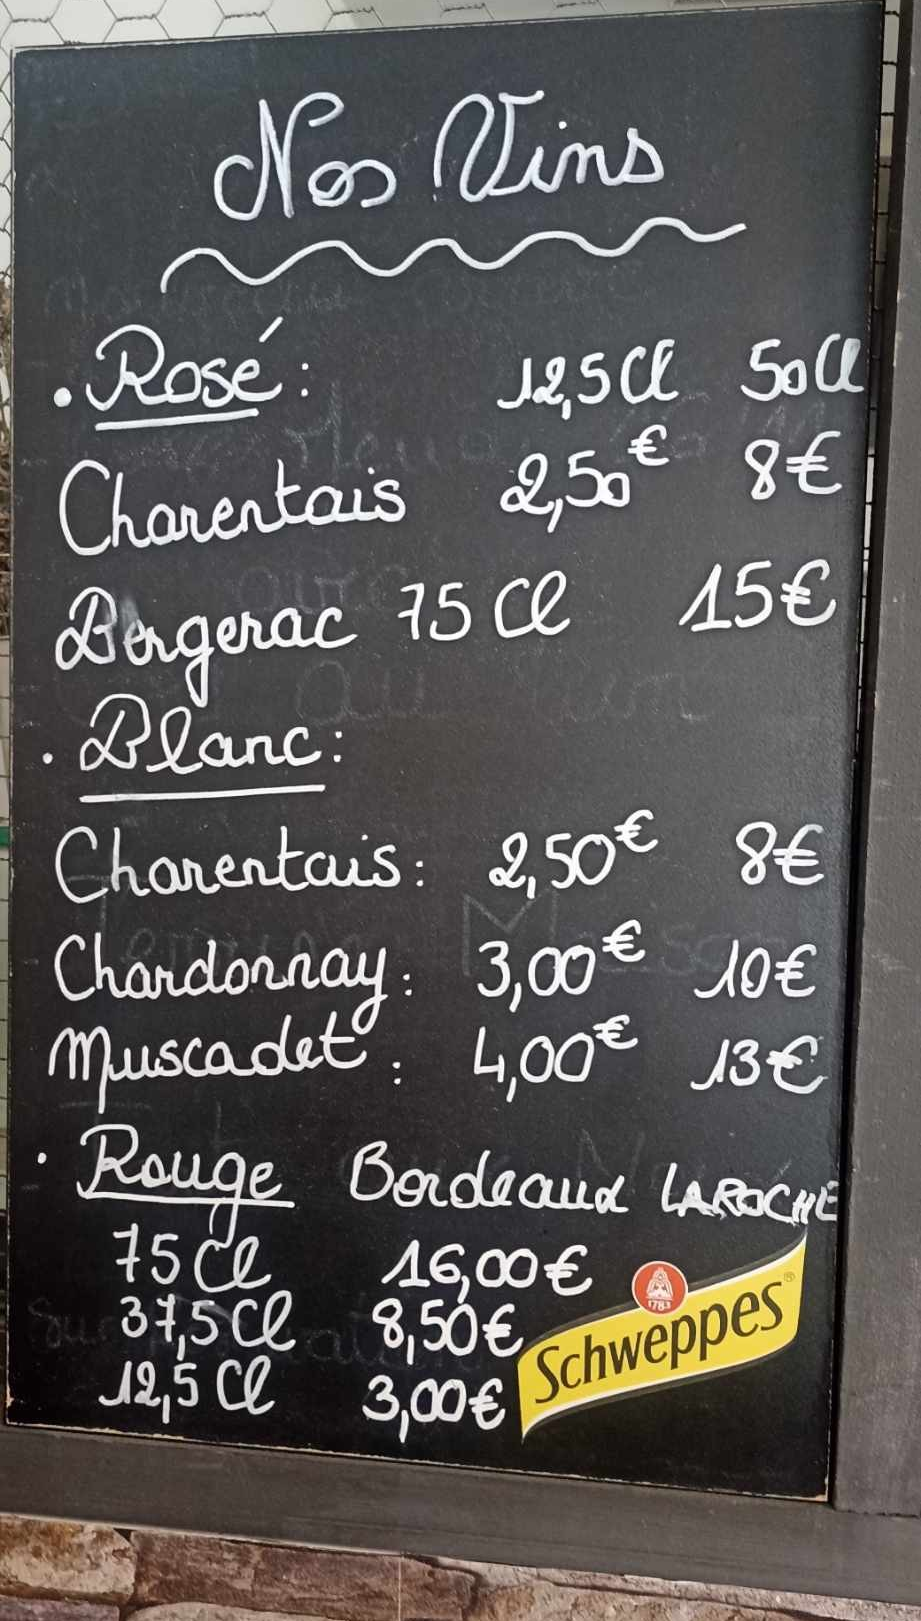 Nos Vins
. Rosé: 12,5 Cl 50 Cl
Charentais 2,50€ 8€
Bergerac 75 Cl 15€
. Blanc:
Charentais: 2,50€ 8€
Chardonnay: 3,00€ 10€
Muscadet: 4,00€ 13€
. Rouge Bordeaux LAROCHE
75 Cl 16,00€
37,5 Cl 8,50€
12,5 Cl 3,00€
1783
Schweppes®